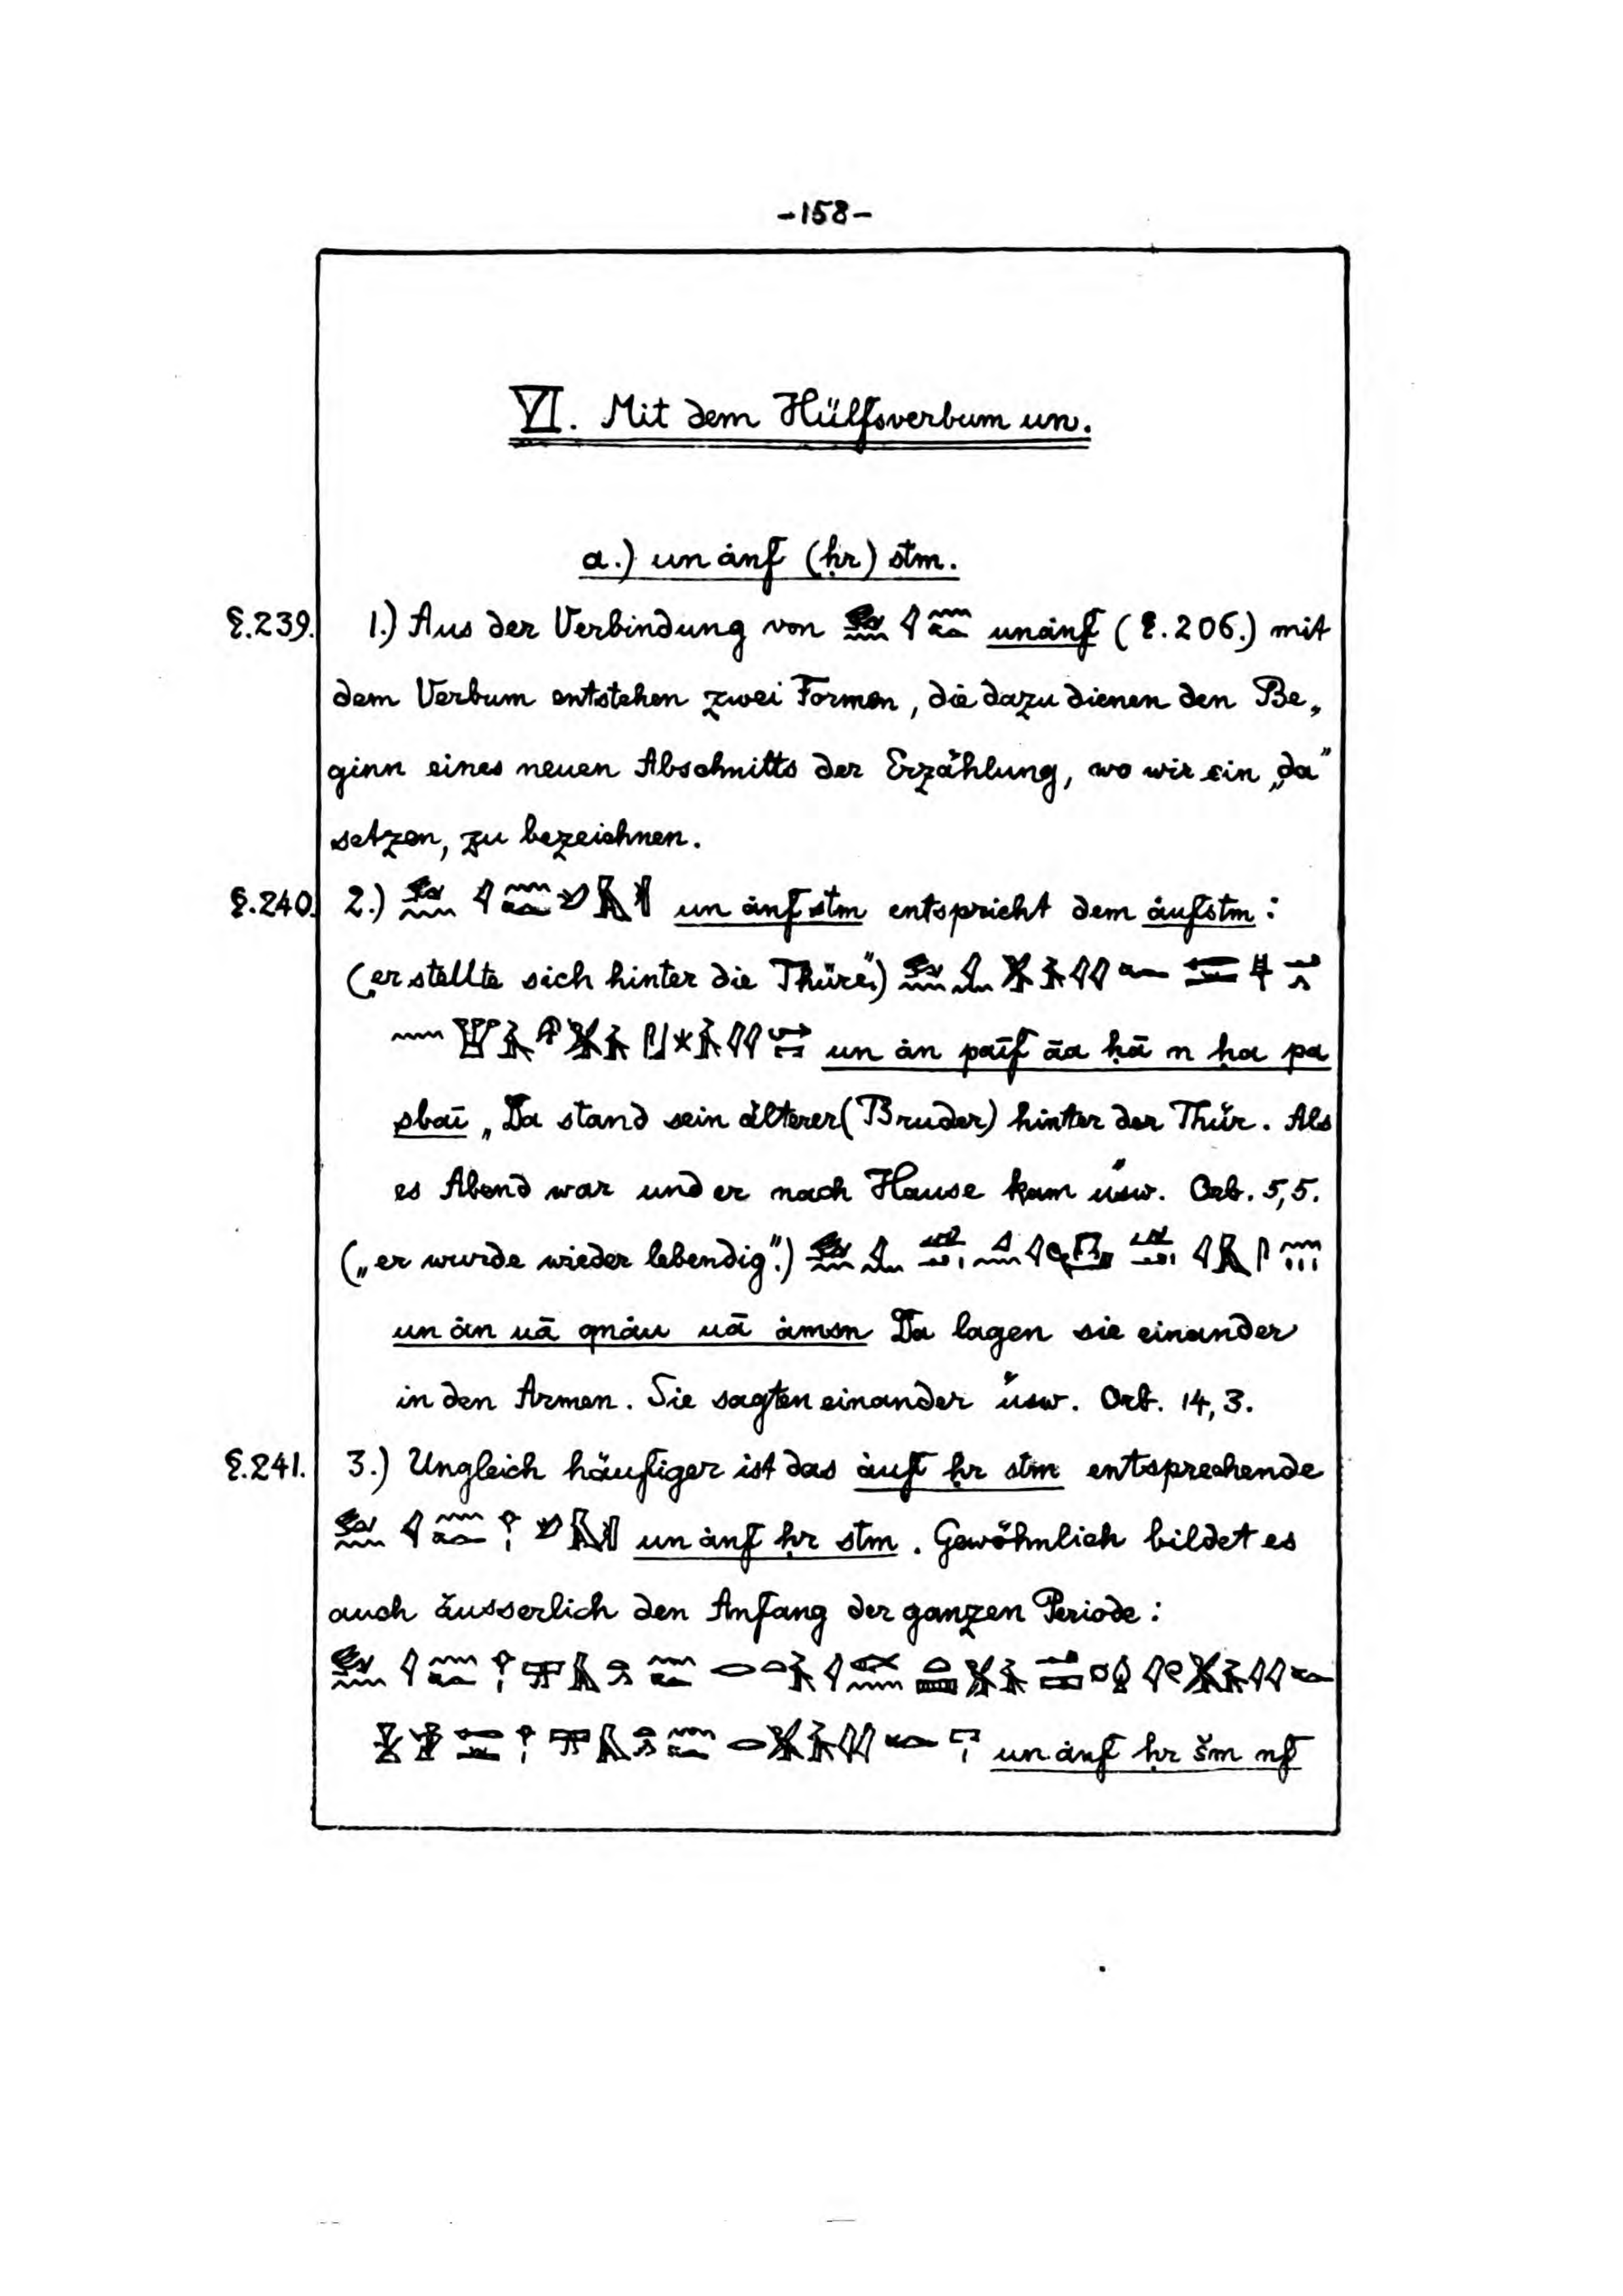 -158-
VI. Mit dem Hülfsverbum un.
a.) un ȧnf (ḥr) stm.
§.239. 1.) Aus der Verbindung von unȧnf (§.206.) mit
dem Verbum entstehen zwei Formen, die dazu dienen den Be„
ginn eines neuen Abschnitts der Erzählung, wo wir ein „da“
setzen, zu bezeichnen.
§.240. 2.) un ȧnf stm entspricht dem ȧufstm:
(„er stellte sich hinter die Thüre“.)
un ȧn paīf āa ḥā n ḥa pa
sbaī „Da stand sein älterer (Bruder) hinter der Thür. Als
es Abend war und er nach Hause kam“ usw. Orb. 5,5.
(„er wurde wieder lebendig“.)
un ȧn uā qnȧu uā ȧmsn Da lagen sie einander
in den Armen. Sie sagten einander“ usw. Orb. 14,3.
§.241. 3.) Ungleich häufiger ist das ȧuf ḥr stm entsprechende
un ȧnf ḥr stm. Gewöhnlich bildet es
auch äusserlich den Anfang der ganzen Periode:
un ȧnf ḥr šm nf